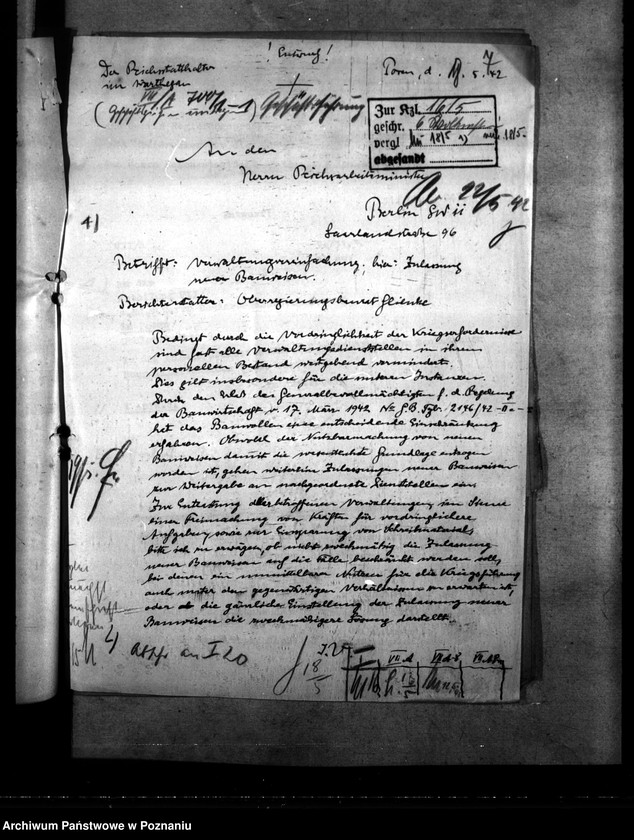 ! Entwurf !
Der Reichsstatthalter
im Warthegau
Posen, d. 5. 42
Geschäftsführung
Zur Kzl. 16/5
geschr. 6
vergl 18/5
abgesandt
An den
Herrn Reichsarbeitsminister
22/5 42
Berlin SW 11
Saarlandstraße 96
4)
Betrifft: Verwaltungsvereinfachung, hier: Zulassung
neuer Bauweisen.
Berichterstatter: Oberregierungsbaurat Glienke
Bedingt durch die Vordringlichkeit der Kriegserfordernisse
sind fast alle Verwaltungsdienststellen in ihrem
personellen Bestand weitgehend vermindert.
Dies gilt insbesondere für die unteren Instanzen.
Durch den Erlaß des Generalbevollmächtigten f. d. Regelung
der Bauwirtschaft v. 17. März 1942 Nr G.B. 2146/42
hat das Bauwollen eine entscheidende Einschränkung
erfahren. Obwohl der Nutzbarmachung von neuen
Bauweisen damit die wesentliche Grundlage entzogen
worden ist, gehen weiterhin Zulassungen neuer Bauweisen
zur Weitergabe an nachgeordnete Dienststellen ein
Zur Entlastung aller betroffenen Verwaltungen, im Sinne
einer Freimachung von Kräften für vordringlichere
Aufgaben, sowie zur Einsparung von Schreibmaterial
bitte ich zu erwägen, ob nicht zweckmäßig die Zulassung
neuer Bauweisen auf die Fälle beschränkt werden soll,
bei denen ein unmittelbarer Nutzen für die Kriegsführung
auch unter den gegenwärtigen Verhältnissen zu erwarten ist,
oder ob die gänzliche Einstellung der Zulassung neuer
Bauweisen die zweckmäßigere Lösung darstellt.
an I 20
I.V.
18/5
Archiwum Państwowe w Poznaniu